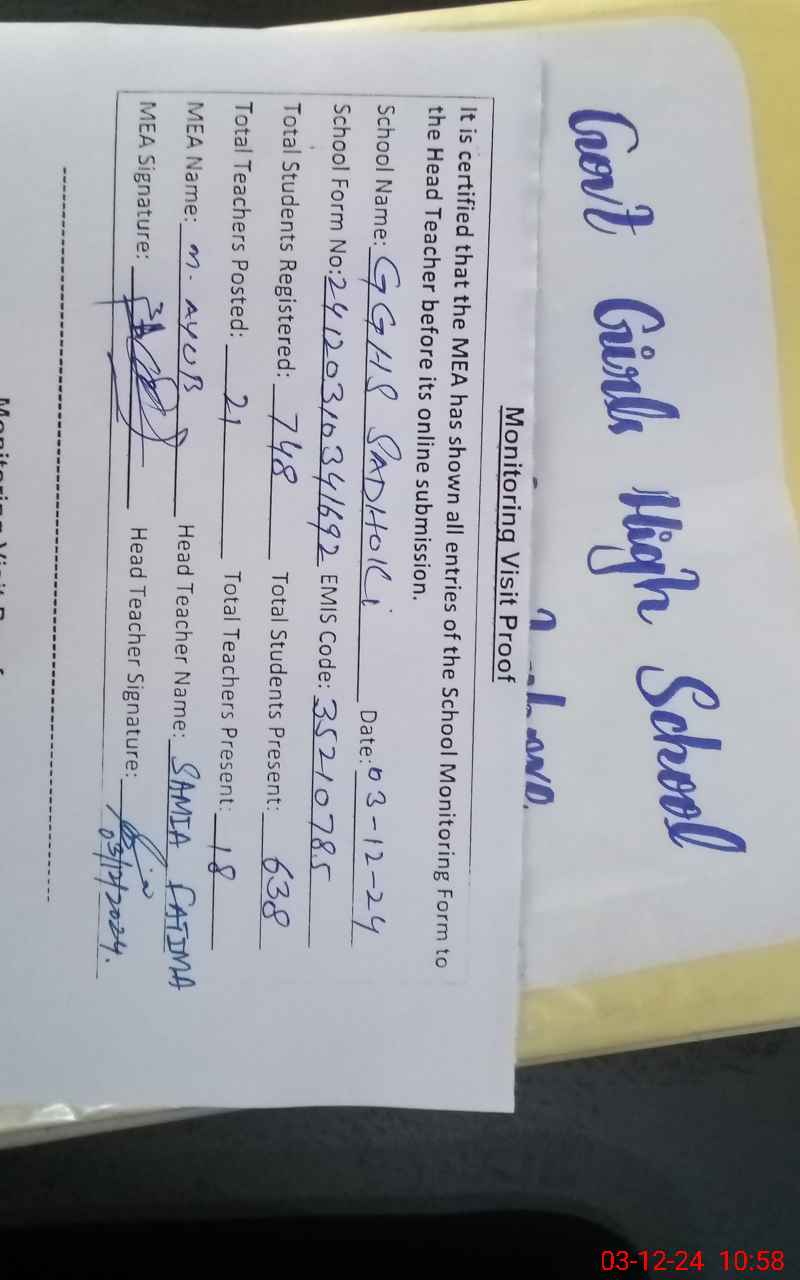 Govt Girls High School
Monitoring Visit Proof
It is certified that the MEA has shown all entries of the School Monitoring Form to
the Head Teacher before its online submission.
School Name: GGHS SADHOKi Date: 03-12-24
School Form No: 241203103941692 EMIS Code: 35210785
Total Students Registered: 748 Total Students Present: 638
Total Teachers Posted: 21 Total Teachers Present: 18
MEA Name: M. AYUB Head Teacher Name: SAMIA FATIMA
MEA Signature: Head Teacher Signature:
03/12/2024.
03-12-24 10:58